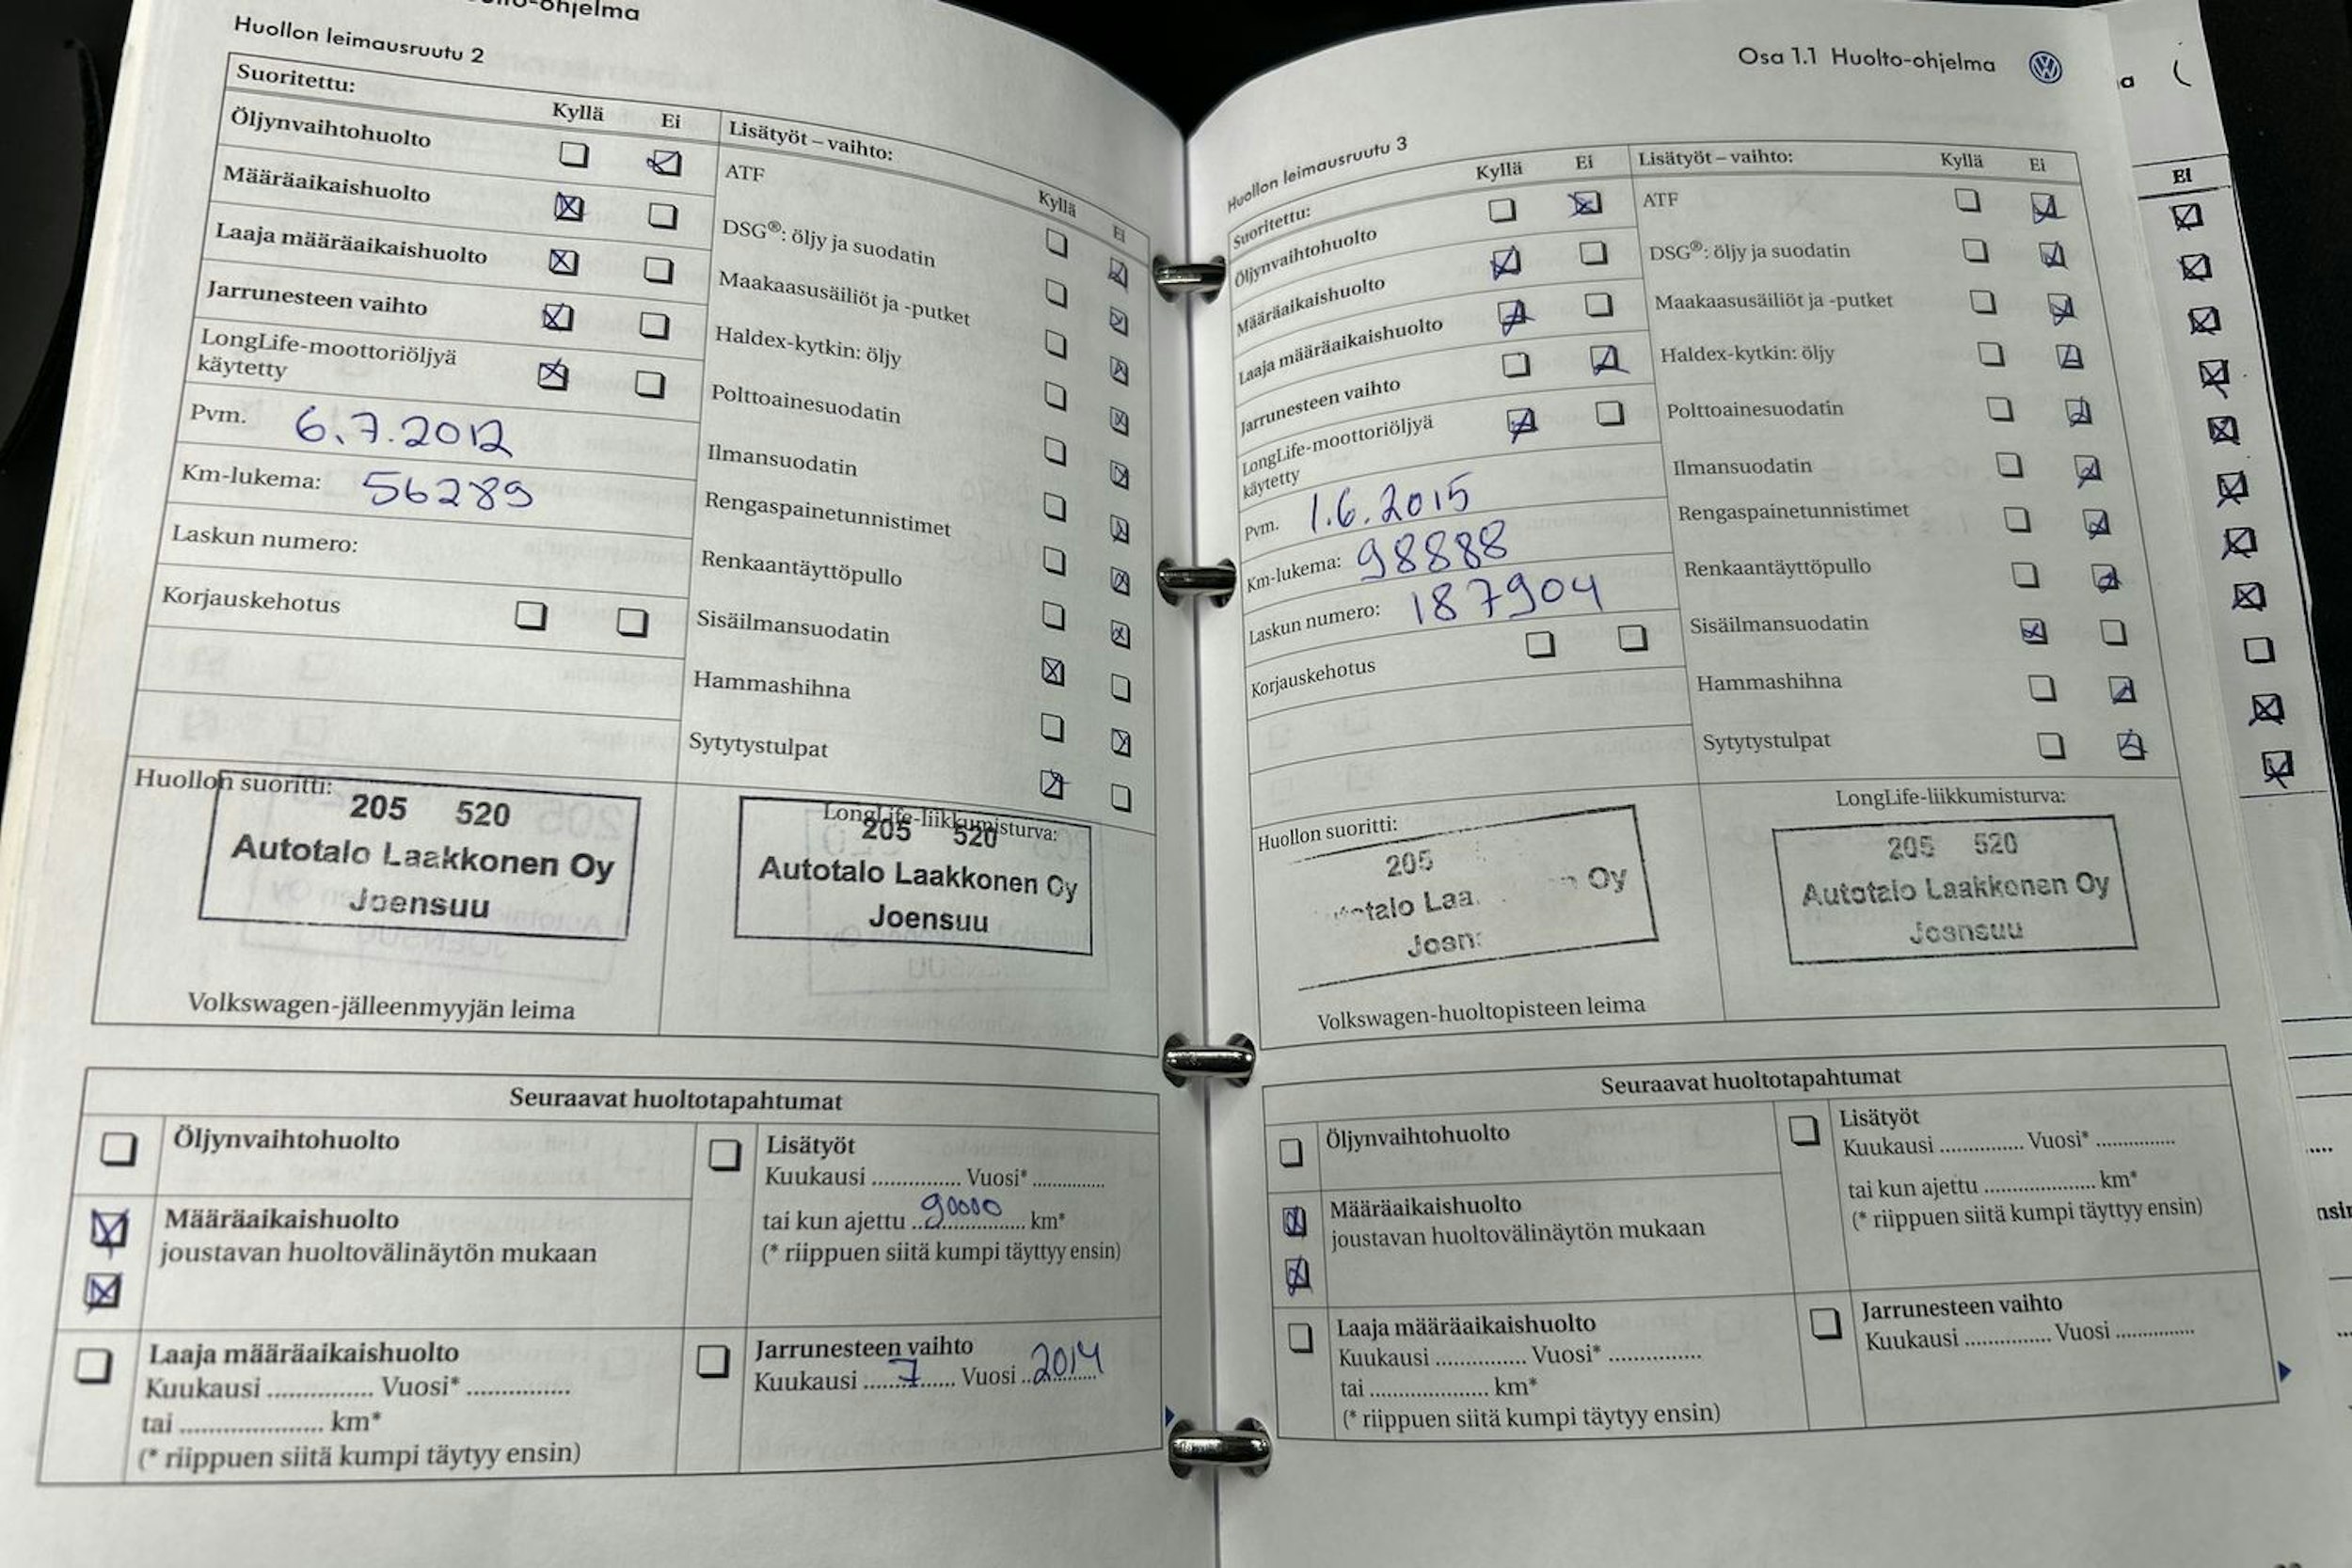 -ohjelma
Huollon leimausruutu 2
Suoritettu:
Kyllä Ei
Öljynvaihtohuolto
Määräaikaishuolto
Laaja määräaikaishuolto
Jarrunesteen vaihto
LongLife-moottoriöljyä
käytetty
Pvm. 6.7.2012
Km-lukema: 56289
Laskun numero:
Korjauskehotus
Lisätyöt – vaihto:
Kyllä Ei
ATF
DSG®: öljy ja suodatin
Maakaasusäiliöt ja -putket
Haldex-kytkin: öljy
Polttoainesuodatin
Ilmansuodatin
Rengaspainetunnistimet
Renkaantäyttöpullo
Sisäilmansuodatin
Hammashihna
Sytytystulpat
Huollon suoritti:
205 520
Autotalo Laakkonen Oy
Joensuu
Volkswagen-jälleenmyyjän leima
LongLife-liikkumisturva:
205 520
Autotalo Laakkonen Oy
Joensuu
Seuraavat huoltotapahtumat
Öljynvaihtohuolto
Määräaikaishuolto
joustavan huoltovälinäytön mukaan
Laaja määräaikaishuolto
Kuukausi ................ Vuosi* ...............
tai ..................... km*
(* riippuen siitä kumpi täytyy ensin)
Lisätyöt
Kuukausi ............. Vuosi* ...........
tai kun ajettu 90000 km*
(* riippuen siitä kumpi täyttyy ensin)
Jarrunesteen vaihto
Kuukausi 7 Vuosi 2014
Osa 1.1 Huolto-ohjelma
Huollon leimausruutu 3
Suoritettu:
Kyllä Ei
Öljynvaihtohuolto
Määräaikaishuolto
Laaja määräaikaishuolto
Jarrunesteen vaihto
LongLife-moottoriöljyä
käytetty
Pvm. 1.6.2015
Km-lukema: 98888
Laskun numero: 187904
Korjauskehotus
Lisätyöt – vaihto:
Kyllä Ei
ATF
DSG®: öljy ja suodatin
Maakaasusäiliöt ja -putket
Haldex-kytkin: öljy
Polttoainesuodatin
Ilmansuodatin
Rengaspainetunnistimet
Renkaantäyttöpullo
Sisäilmansuodatin
Hammashihna
Sytytystulpat
Huollon suoritti:
205
talo Laa Oy
Joen
Volkswagen-huoltopisteen leima
LongLife-liikkumisturva:
205 520
Autotalo Laakkonen Oy
Joensuu
Seuraavat huoltotapahtumat
Öljynvaihtohuolto
Määräaikaishuolto
joustavan huoltovälinäytön mukaan
Laaja määräaikaishuolto
Kuukausi .............. Vuosi* ..............
tai .................. km*
(* riippuen siitä kumpi täytyy ensin)
Lisätyöt
Kuukausi ............. Vuosi* ............
tai kun ajettu ................. km*
(* riippuen siitä kumpi täyttyy ensin)
Jarrunesteen vaihto
Kuukausi ............. Vuosi ............
Ei